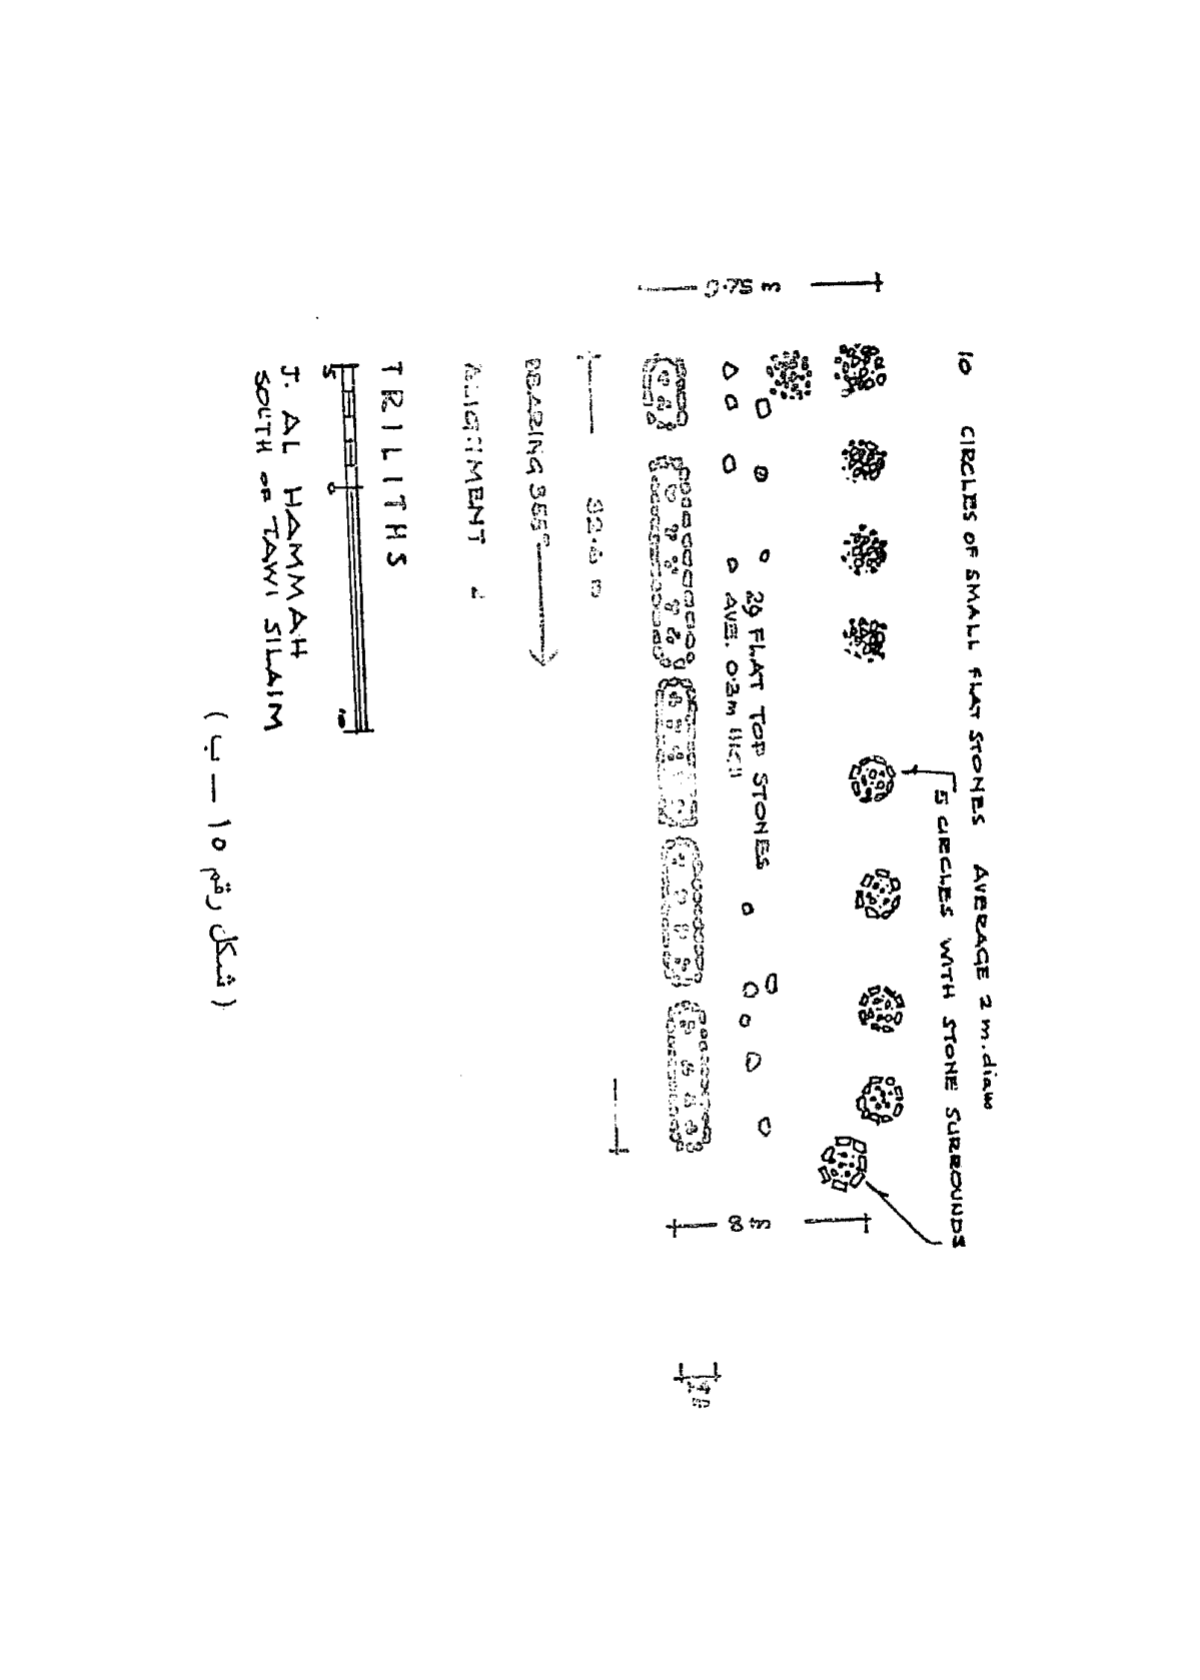 10 CIRCLES OF SMALL FLAT STONES AVERAGE 2 m. diam
5 CIRCLES WITH STONE SURROUNDS
9.75 m
8 m
29 FLAT TOP STONES
AVE. 0.3m HIGH
BEARING 355°
ALIGNMENT 2
TRILITHS
5 0 10
J. AL HAMMAH
SOUTH OF TAWI SILAIM
(شكل رقم ١٥ — ب)